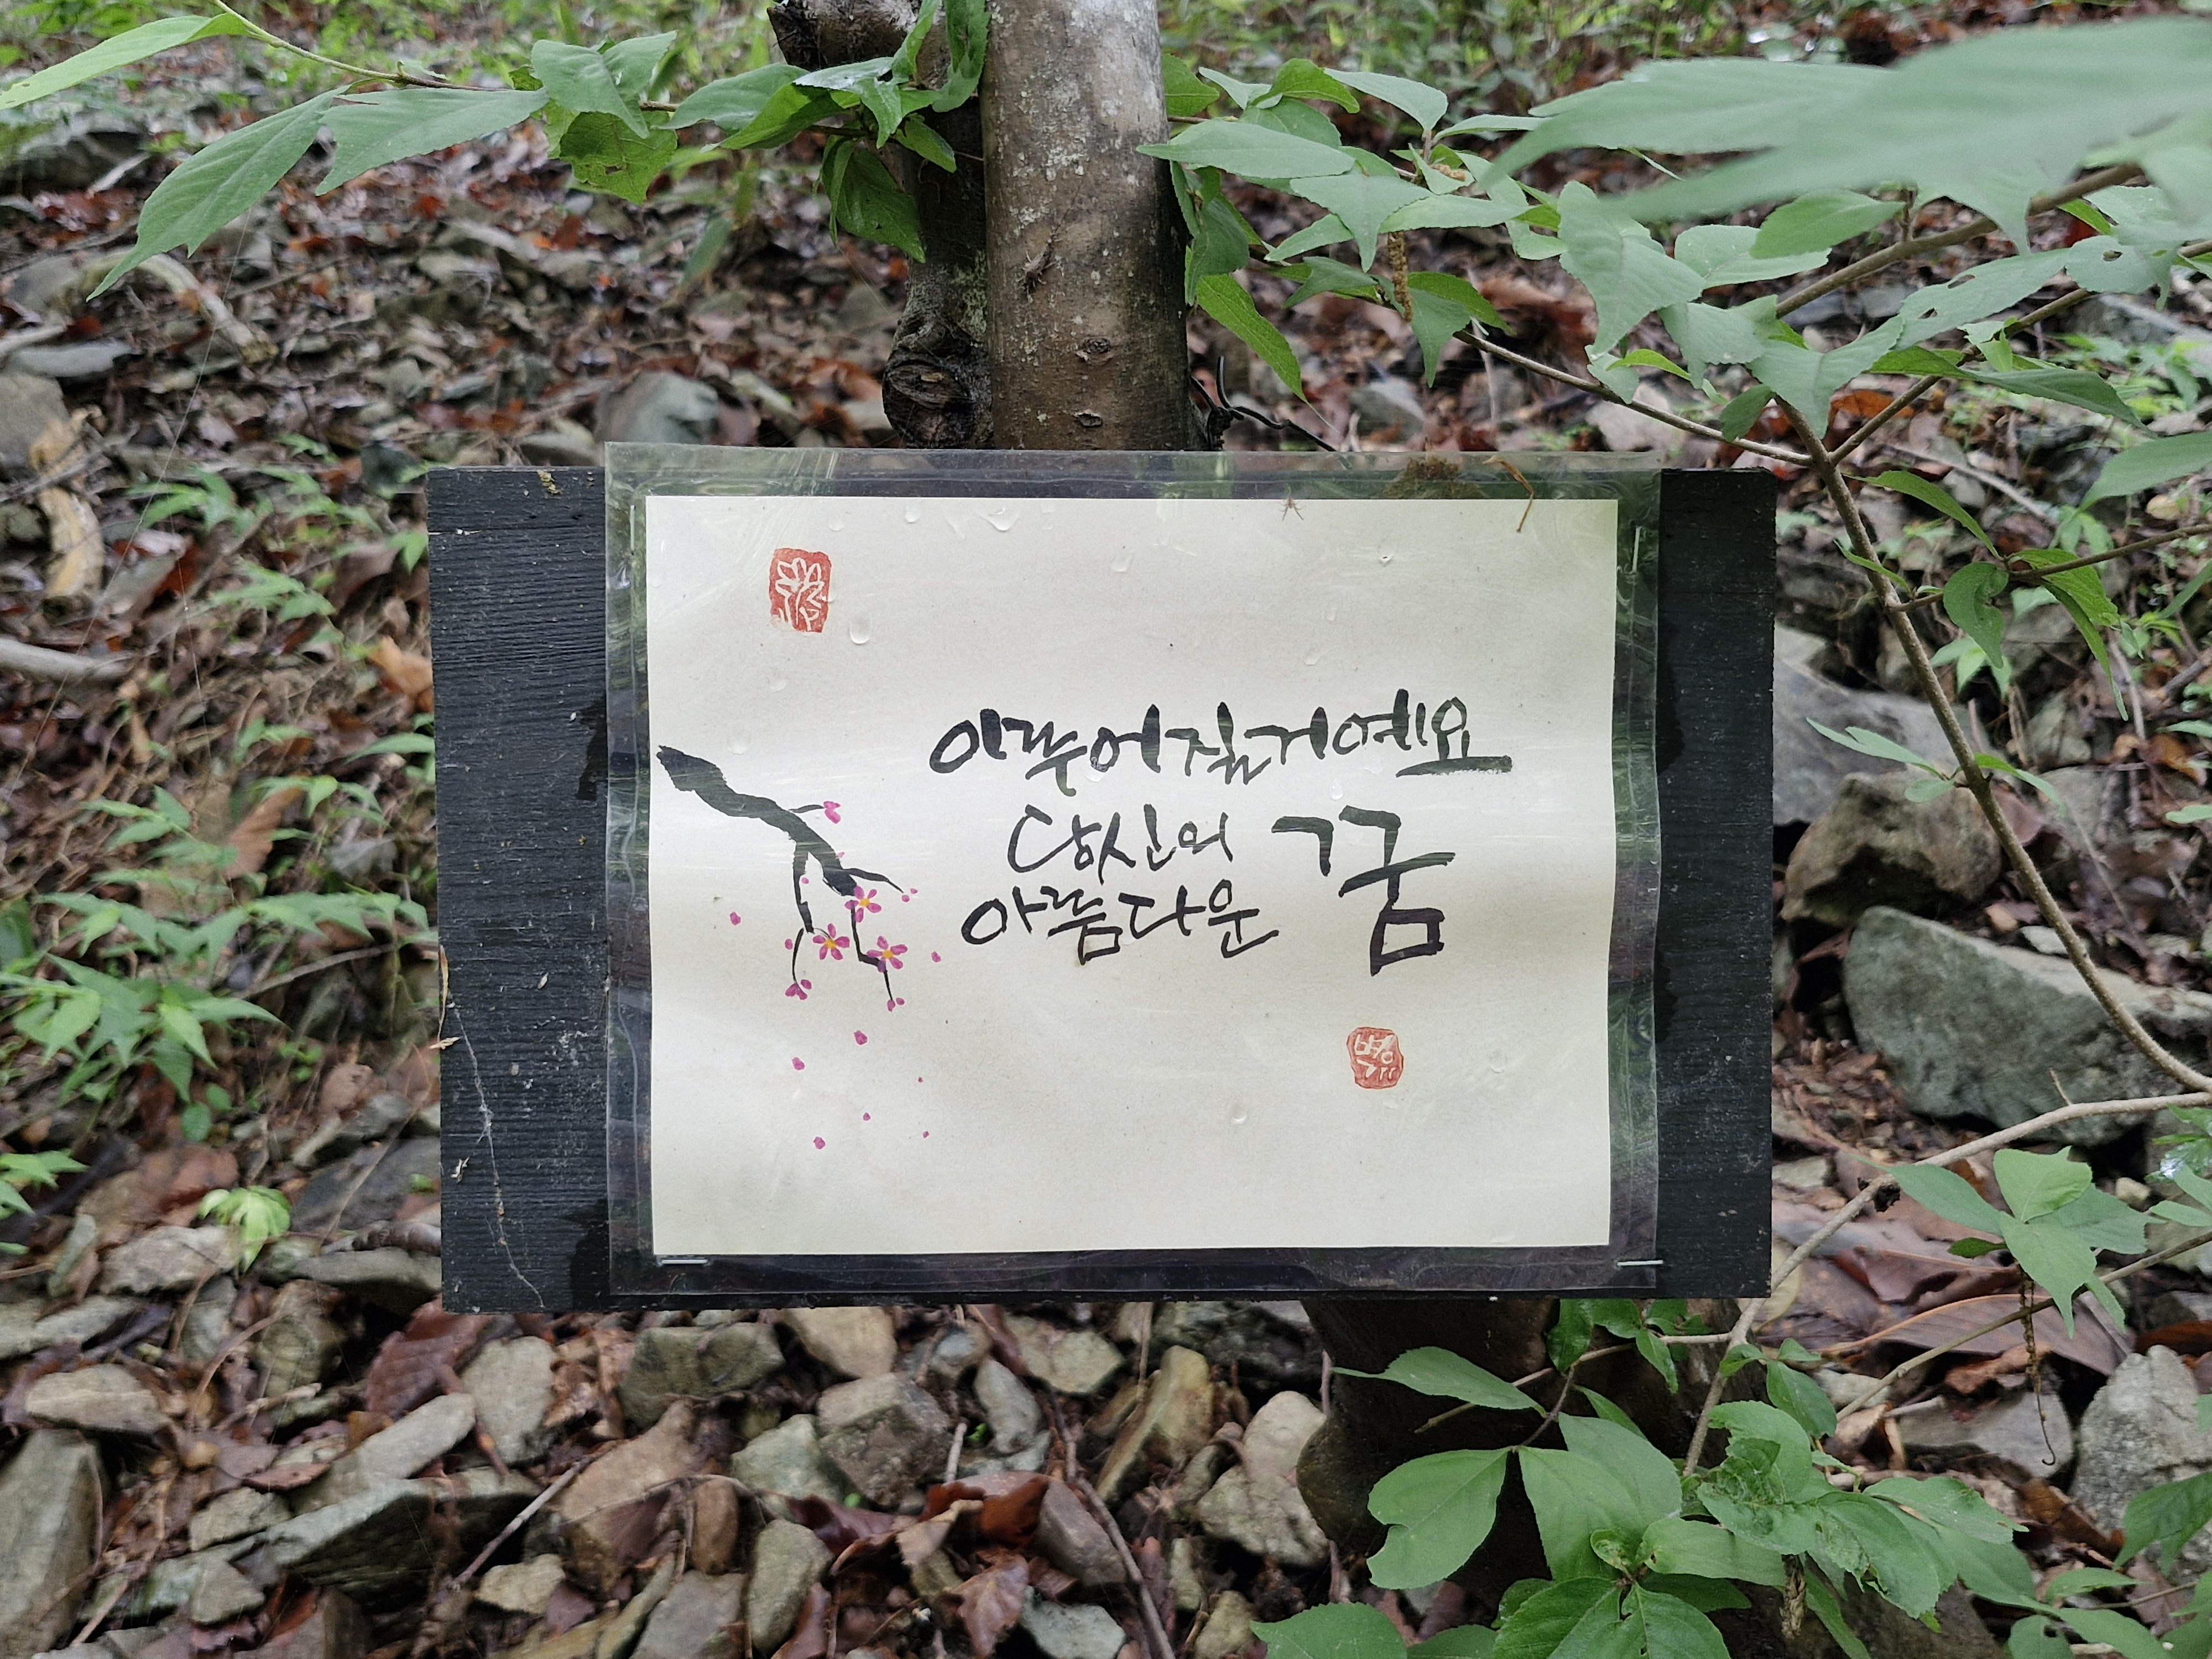 이루어질거예요
당신의 꿈
아름다운